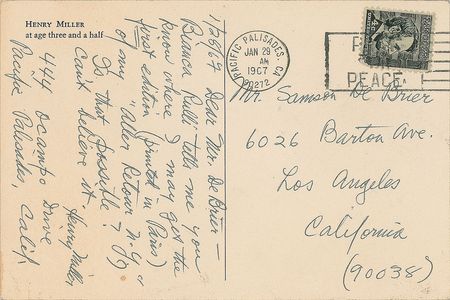 HENRY MILLER
at age three and a half
1/28/67 Dear Mr. De Brier –
Bianca Rulli tells me you
know where I may get the
first edition (printed in Paris)
of my "Aller Retour N.Y."
Is that possible? I
can't believe it.
Henry Miller
444 Ocampo Drive
Pacific Palisades, Calif.
PACIFIC PALISADES, CA
JAN 29
AM
1967
90272
PEACE
Mr. Samson De Brier
6026 Barton Ave.
Los Angeles
California
(90038)